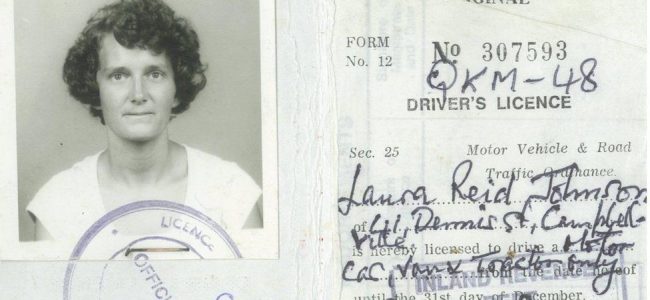 ORIGINAL
FORM
No. 12
No 307593
QKM-48
DRIVER'S LICENCE
Sec. 25 Motor Vehicle & Road
Traffic Ordinance.
Laura Reid Johnson
of 41, Dennis St, Campbell-
ville
is hereby licensed to drive a Motor
Car, Van & Tractor only
from the date hereof
until the 31st day of December.
INLAND REVENUE
LICENCE
OFFIC